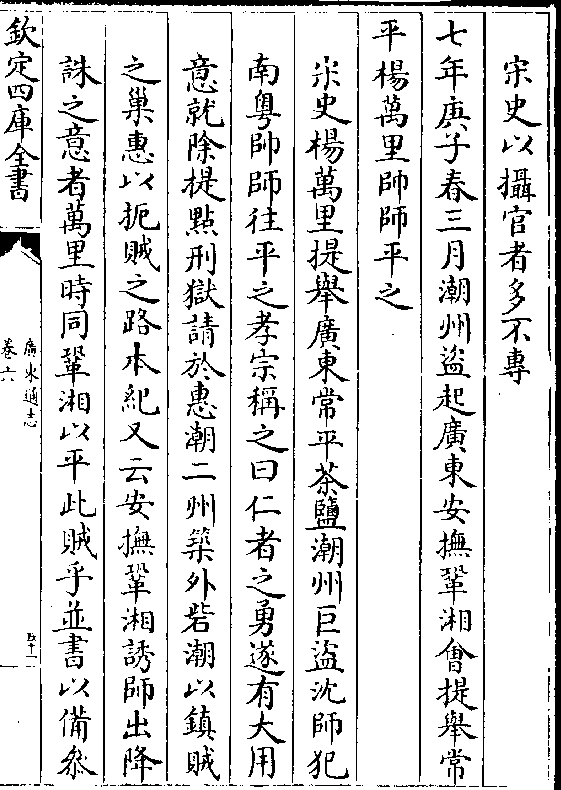 宋史以攝官者多不專
七年庚子春三月潮州盜起廣東安撫鞏湘㑹提舉常
平楊萬里帥師平之
宋史楊萬里提舉廣東常平茶鹽潮州巨盜沈師犯
南粵帥師往平之孝宗稱之曰仁者之勇遂有大用
意就除提點刑獄請於惠潮二州築外砦潮以鎮賊
之巢惠以扼賊之路本紀又云安撫鞏湘誘師出降
誅之意者萬里時同鞏湘以平此賊乎並書以備叅
欽定四庫全書
廣東通志
卷六